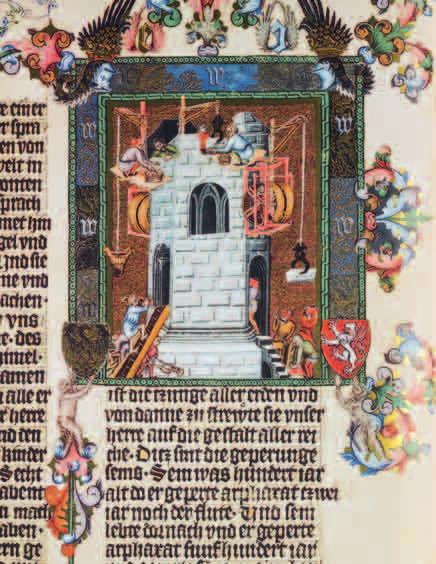 e a
w
w w
w
re einer
er spra
en von
velt in
onten
sprach
met hin
gel vnd
Jnd sie
ne vnd
achen·
y vns
e· des
imel·
amen
alle er
herre
nd den
kinder
Secht
abent
n mach
aben·
ern ge
ist die tzunge aller erden vnd
von danne zu strewte sie vnser
herre auf die gestalt aller rei
che· Ditz sint die geperunge
sems· Sem was hundert iar
alt do er geperte arphaxat tzwei
iar noch der flute· Vnd sem
lebte dornach vnd er geperte
arphaxat funf hundert iar